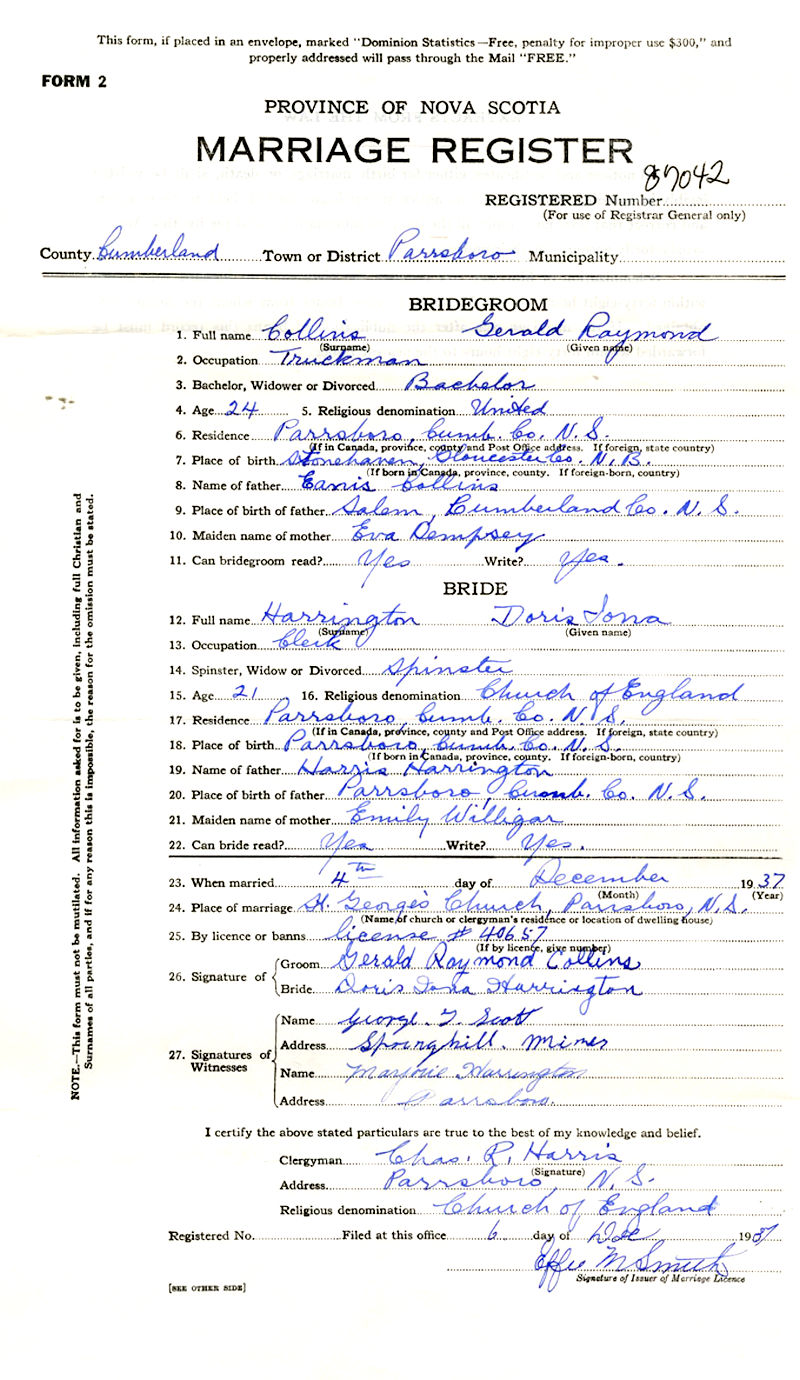 This form, if placed in an envelope, marked "Dominion Statistics—Free, penalty for improper use $300," and
properly addressed will pass through the Mail "FREE."
FORM 2
PROVINCE OF NOVA SCOTIA
MARRIAGE REGISTER
REGISTERED Number 87042
(For use of Registrar General only)
County Cumberland Town or District Parrsboro Municipality
BRIDEGROOM
1. Full name Collins Gerald Raymond
(Surname) (Given name)
2. Occupation Truckman
3. Bachelor, Widower or Divorced Bachelor
4. Age 24 5. Religious denomination United
6. Residence Parrsboro, Cumb. Co. N. S.
(If in Canada, province, county and Post Office address. If foreign, state country)
7. Place of birth Stonehaven, Gloucester Co. N. B.
(If born in Canada, province, county. If foreign-born, country)
8. Name of father Collins
9. Place of birth of father Salem, Cumberland Co. N. S.
10. Maiden name of mother Eva Dempsey
11. Can bridegroom read? Yes Write? Yes.
BRIDE
12. Full name Harrington Doris Iona
(Surname) (Given name)
13. Occupation Clerk
14. Spinster, Widow or Divorced Spinster
15. Age 21 16. Religious denomination Church of England
17. Residence Parrsboro, Cumb. Co. N. S.
(If in Canada, province, county and Post Office address. If foreign, state country)
18. Place of birth Parrsboro, Cumb. Co. N. S.
(If born in Canada, province, county. If foreign-born, country)
19. Name of father Harris Harrington
20. Place of birth of father Parrsboro, Cumb. Co. N. S.
21. Maiden name of mother Emily Willigar
22. Can bride read? Yes Write? Yes.
23. When married 4th day of December 1937
(Month) (Year)
24. Place of marriage St. George's Church, Parrsboro, N. S.
(Name of church or clergyman's residence or location of dwelling house)
25. By licence or banns license # 40657
(If by licence, give number)
26. Signature of Groom Gerald Raymond Collins
Bride Doris Iona Harrington
27. Signatures of Witnesses
Name George T. Scott
Address Springhill. Mines
Name Marjorie Harrington
Address Parrsboro.
I certify the above stated particulars are true to the best of my knowledge and belief.
Clergyman Chas. R. Harris
(Signature)
Address Parrsboro, N. S.
Religious denomination Church of England
Registered No. Filed at this office 6 day of Dec 1937
Effie M Smith
Signature of Issuer of Marriage Licence
[SEE OTHER SIDE]
NOTE.—This form must not be mutilated. All information asked for is to be given, including full Christian and
Surnames of all parties, and if for any reason this is impossible, the reason for the omission must be stated.